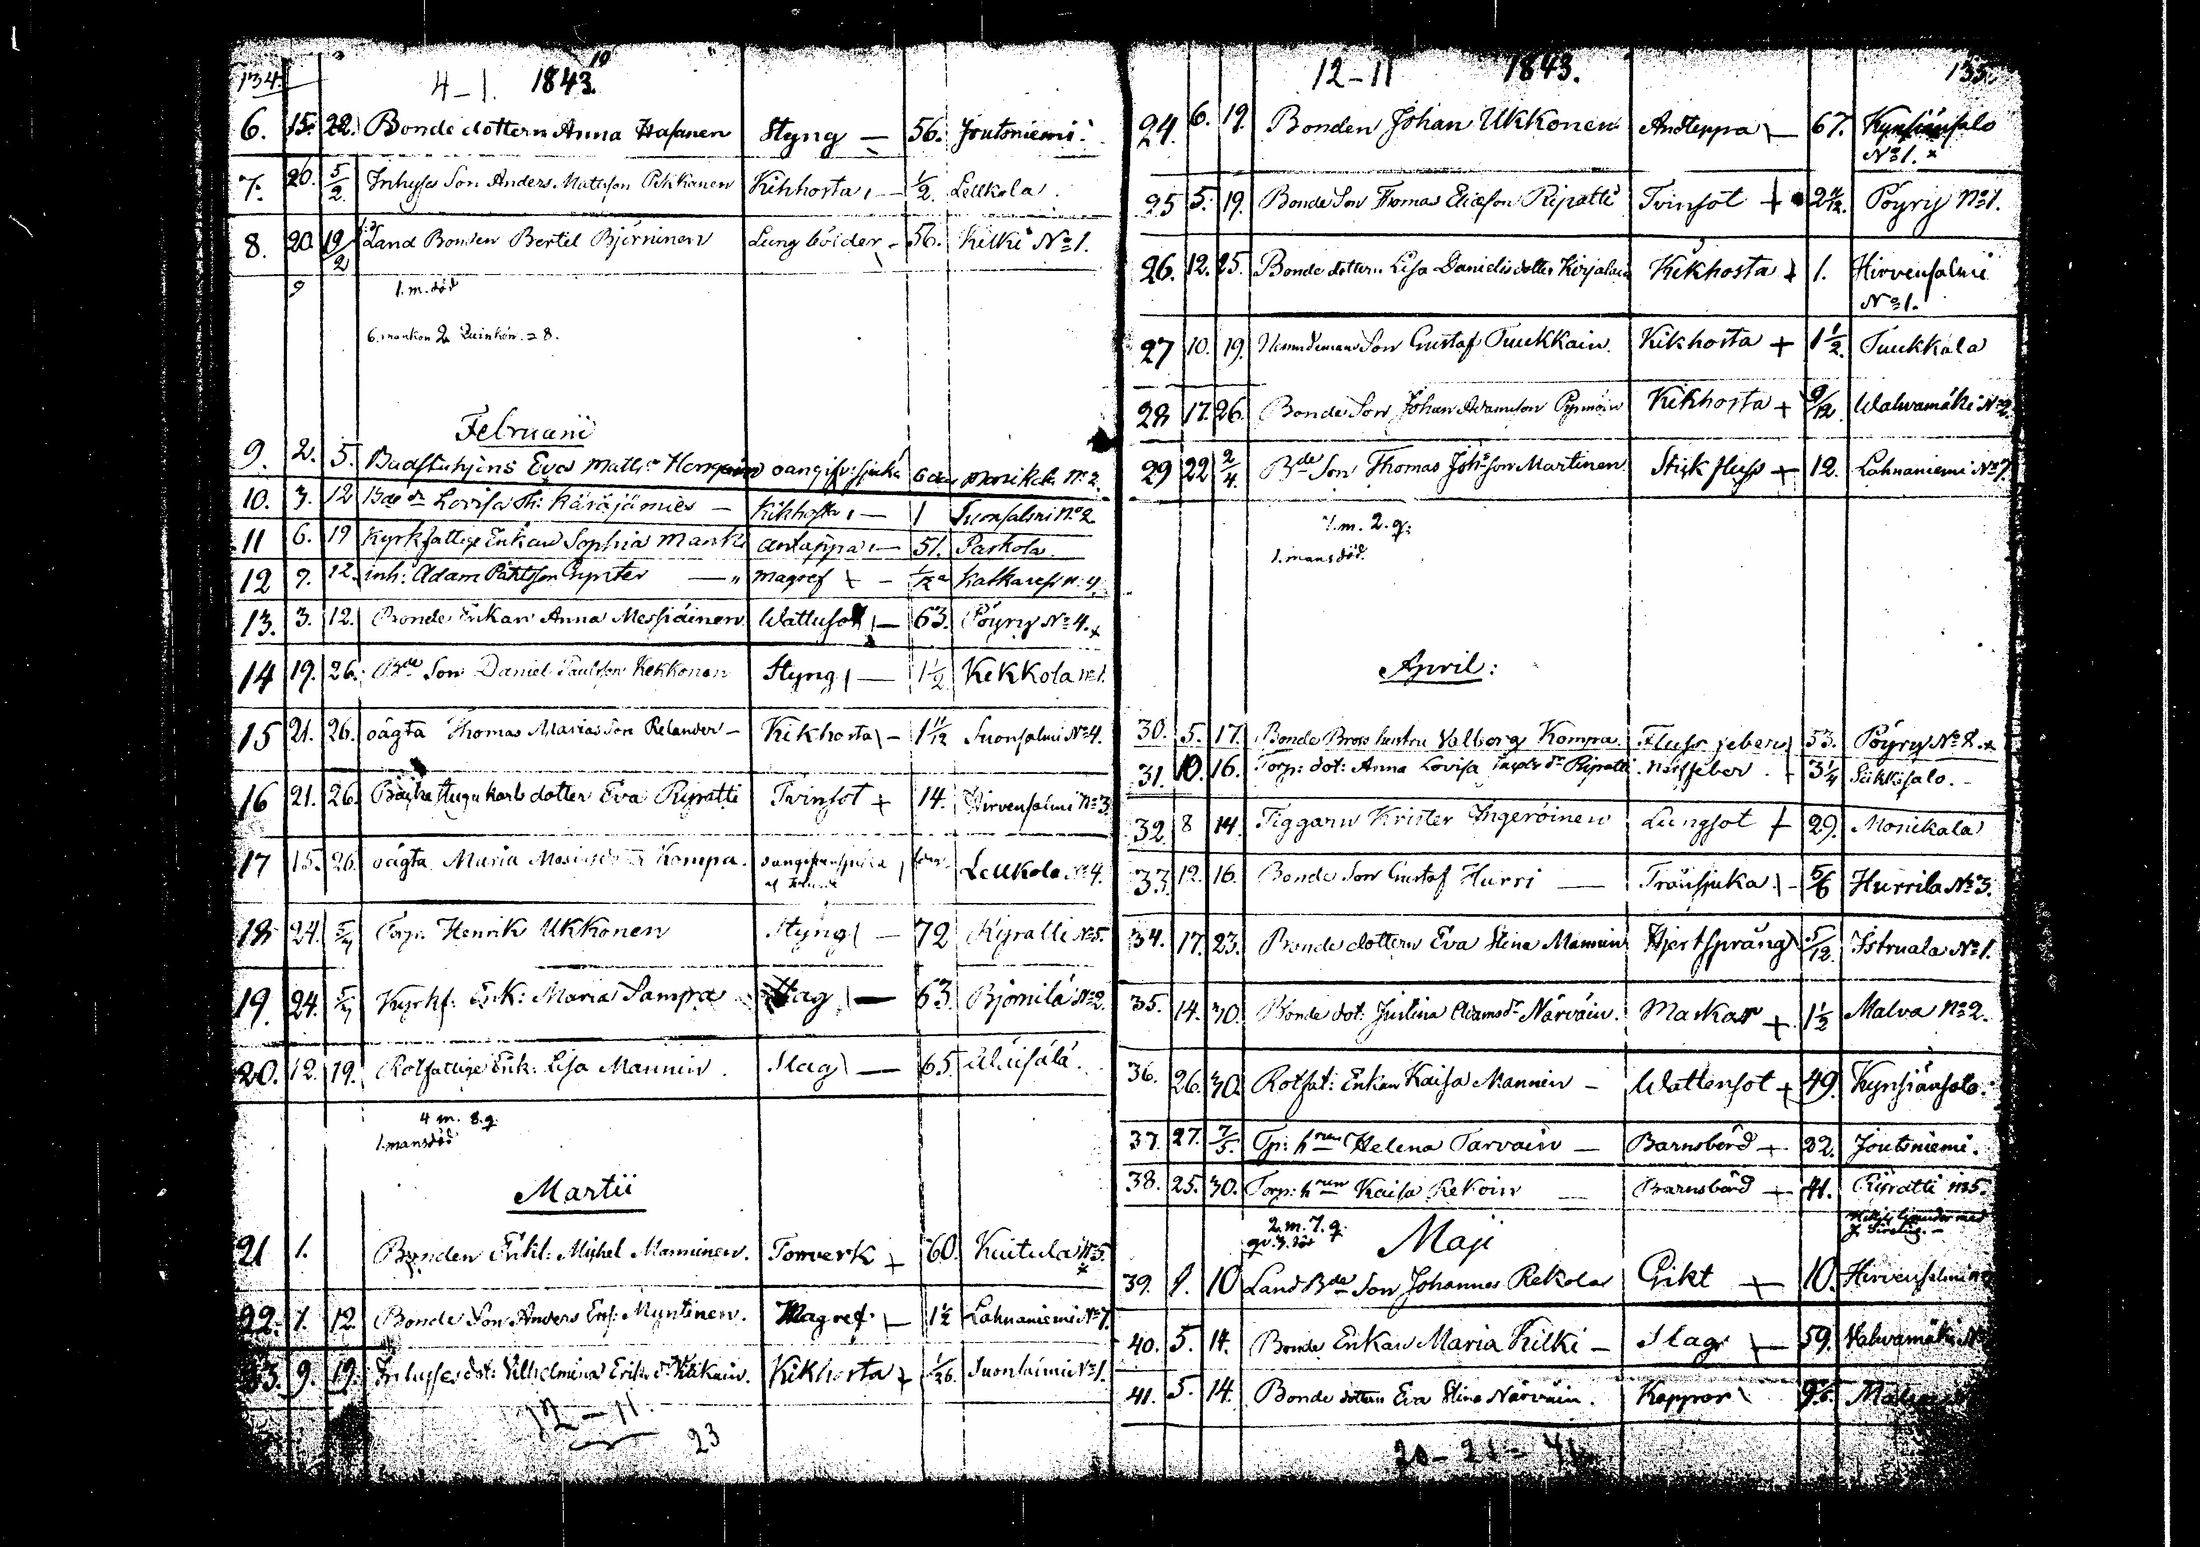 134. 4-1. 1843.
6. 15. 22. Bonde dottern Anna Hasanen Styng — 56. Joutsniemi.
7. 26. 5/2. Inhyses Son Anders Mattsson Pekkanen Kikhosta, — 1/2. Leukola.
8. 20. 19/2 Land Bonden Bertel Björninen Lung bölder — 56. Kilki No 1.
1. m. död
6. mankön 2 Quinkön = 8.
Februarii
9. 2. 5. Eva Matts 6 Monikala No 2.
10. 3. 12 Lovisa Th: Käräjämies — Kikhosta, — 1 Suonsalmi No 2.
11 6. 19 Kyrkfattige Enkan Sophia Manki Antäppa, — 51. Parkola.
12 7. 12. inh: Adam Påhlsson — " magref + —
13. 3. 12. Bonde Enkan Anna Messiäinen Wattusot — 63. Pöyry No 4. x
14 19. 26. Bde Son Daniel Paulsson Kekkonen Styng — 1 1/2 Kekkola No 1.
15 21. 26. oägta Thomas Mariasson Relander — Kikhosta — 1 1/12 Suonsalmi No 4.
16 21. 26. Backstugukarls dotter Eva Ripatti Tvinsot + 14. Hirvensalmi No 3.
17 15. 26. oägta Maria Kompa. Leukola No 4.
18 24. 5/3 Torp. Henrik Ukkonen Styng — 72 Ripatti No 5.
19. 24. 5/3 Kyrkf: Enk: Maria Sampa Slag — 63. Björnilä No 2.
20. 12. 19. Rotfattige Enk: Lisa Mannin. Slag — 65
4 m. 8. q.
1. mansdöd
Martii
21 1. Bonden Enkl: Michel Manninen. Torrverk + 60. Kuitula No 5. x
22. 1. 12. Bonde Son Anders Er: s: Myntinen. Magref. — 1 1/2 Lahnaniemi No 7.
23. 9. 19. Inhyses dot: Vilhelmina Eriks dr Kikhosta + Suonsalmi No 1.
12 — 11.
23
12-11 1843. 135.
24. 6. 19. Bonden Johan Ukkonen Andteppa — 67. Kynsiänsalo
No 1. x
25 5. 19. Bonde Son Thomas Eliasson Ripatti Tvinsot + Pöyry No 1.
26. 12. 25. Bonde dottern Lisa Danielsdotter Kirjalain Kikhosta + 1. Hirvensalmi
No 1.
27 10. 19. Son Gustaf Tuukkain. Kikhosta + 1 1/2. Tuukkala
28 17. 26. Bonde Son Johan Adamsson Kikhosta + 9/12. Wahvamäki No 2.
29 22 2/4. Bde Son Thomas Johsson Martinen Stickfluss + 12. Lahnaniemi No 7.
1. m. 2. q.
1. mansdöd.
April:
30. 5. 17. Bonde Brors hustru Valborg Kompa. Flussfeber 53. Pöyry No 2. x
31. 10. 16. Torp: dot: Anna Lovisa dr Ripatti. Nerffeber. + 3 1/4 Siikasalo. —
32. 8 14. Tiggarn Krister Ingeröinen Lungsot + 29. Monikala
33. 12. 16. Bonde Son Gustaf Hurri — Trånsjuka — 5/6 Hurrila No 3.
34. 17. 23. Bonde dottern Eva Stina Mannin Hjertsprång 5/12. Istruala No 1.
35. 14. 30. Bonde dot: Justina Adams dr Närväin. Maskar + 1 1/2 Malva No 2.
36. 26. 30. Rotfat: Enkan Kaisa Mannin — Wattensot + 49. Kynsiänsalo.
37. 27. 7/5. Tp: hrun Helena Tarvain — Barnsbörd + 32. Joutsniemi.
38. 25. 30. Torp: hrun Kaisa Rekoin — Barnsbörd + 41. Ripatti No 5.
2. m. 7. q.
Maji
39. 1. 10 Land Bde Son Johannes Rekola Gikt + 10. Hirvensalmi
40. 5. 14. Bonde Enkan Maria Kilki — Slag — 59. Vahvamäki No
41. 5. 14. Bonde dottern Eva Stina Närväin. Koppor
20 - 21 = 41.